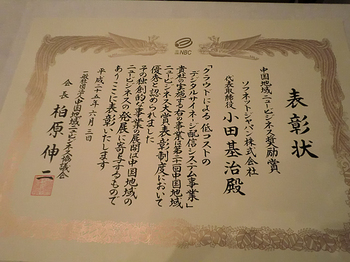 NBC
表彰状
中国地域ニュービジネス奨励賞
ソフネットジャパン株式会社
代表取締役 小田基治殿
「クラウドによる低コストの
デジタルサイネージ配信システム事業」
貴社の実施する右の事業は第二十二回中国地域
ニュービジネス大賞表彰制度において
優秀と認められました
その独創的な事業の展開は中国地域の
ニュービジネスの発展に寄与するもので
ありここに表彰いたします
平成二十六年六月三日
一般社団法人中国地域ニュービジネス協議会
会長 柏原伸二